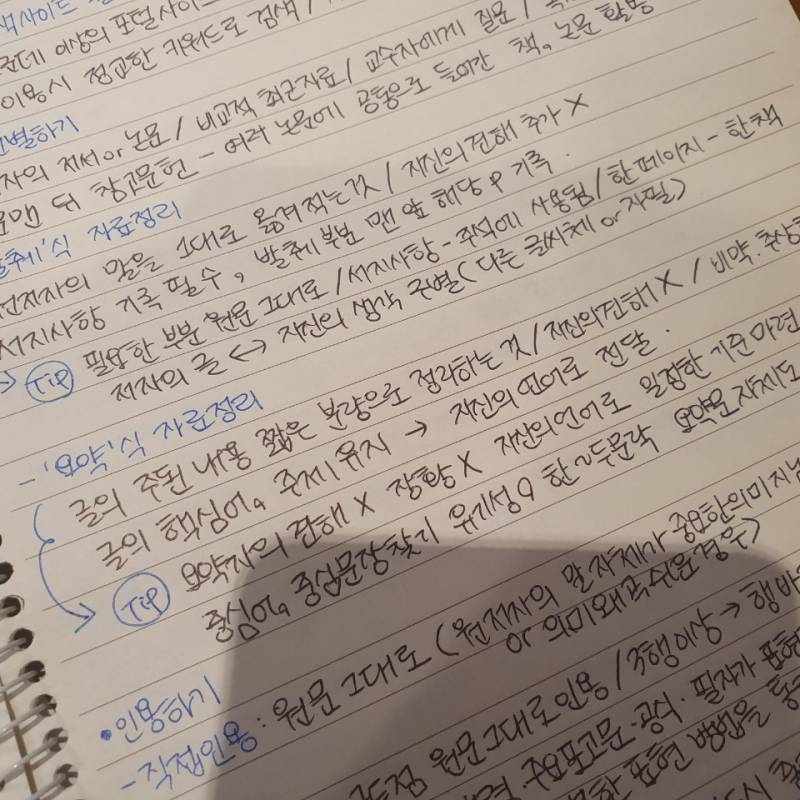 색사이트
이상의 포털사이트
이용시 정교한 키워드로 검색 /
선별하기
자의 저서 or 논문 / 비교적 최근자료 / 교수자에게 질문 /
맨 뒤 참고문헌 - 여러 논문에 공통으로 들어간 책, 논문 활용
발췌'식 자료정리
원저자의 말을 그대로 옮겨적는 것 / 자신의 견해 추가 X
서지사항 기록 필수, 발췌 부분 맨 앞 해당 P 기록.
TIP 필요한 부분 원문 그대로 / 서지사항 - 주석에 사용됨 / 한 페이지 - 한 책
저자의 글 ↔ 자신의 생각 구별 (다른 글씨체 or 자필)
- '요약'식 자료정리
글의 주된 내용 짧은 분량으로 정리하는 것 / 자신의 견해 X / 비약.추상
글의 핵심어, 주제 유지 → 자신의 언어로 전달.
TIP 요약자의 견해 X 장황 X 자신의 언어로 일정한 기준 마련
중심어, 중심문장 찾기 유기성 O 한~두문락 요약문 자체도
• 인용하기
- 직접인용 : 원문 그대로 (원저자의 말 자체가 중요한 의미 지님
or 의미 왜곡 쉬운 경우)
원문 그대로 인용 / 3행 이상 → 행 바
주요포고문·공식·필자가 표현
표현 방법을 통